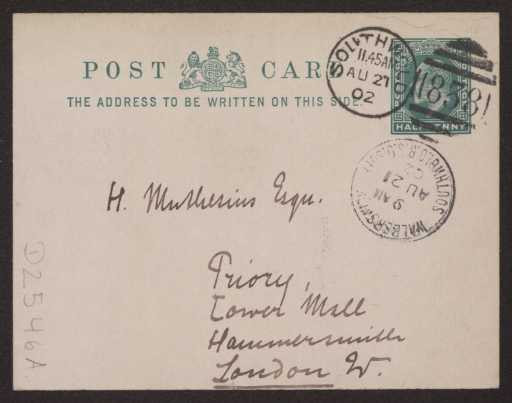 POST CARD
THE ADDRESS TO BE WRITTEN ON THIS SIDE.
11.45AM
AU 21
02
HALFPENNY
WALBERSWICK
9 AM
AU 21
02
H. Muthesius Esqu.
Priory,
Lower Mall
Hammersmith
London W.
D2546A